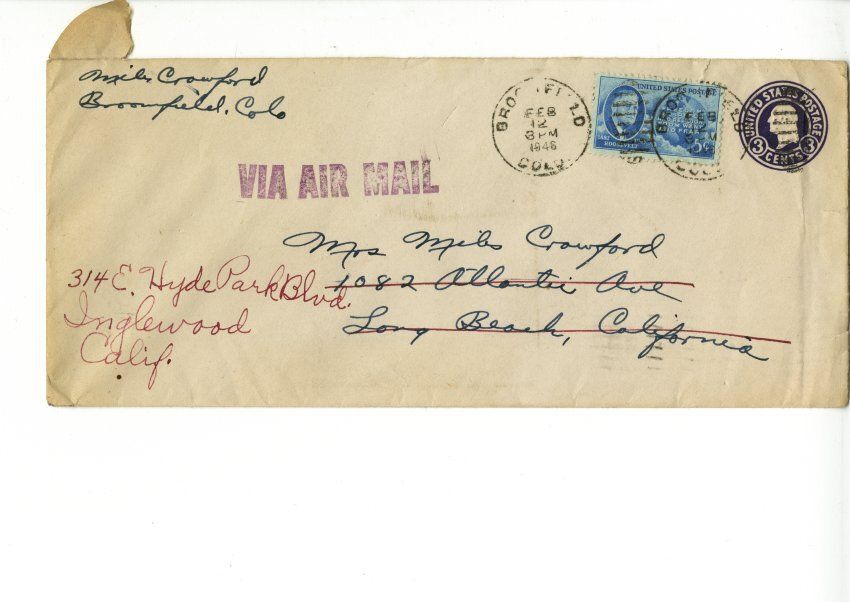 Miles Crawford
Broomfield, Colo
BROOMFIELD
FEB
12
3 PM
1946
COLO.
UNITED STATES POSTAGE
ROOSEVELT
5¢
FEB
12
COLO
UNITED STATES POSTAGE
3 3
CENTS
VIA AIR MAIL
Mrs Miles Crawford
1082 Atlantic Ave
Long Beach, California
314 E. Hyde Park Blvd.
Inglewood
Calif.